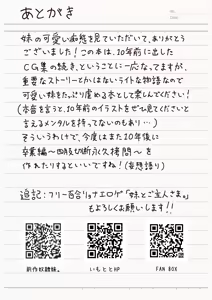 あとがき
妹の可愛い痴態を見ていただいて、ありがとう
ございました！この本は、10年前に出した
CG集の続き、ということに一応なってますが、
重要なストーリーとかはないライトな物語なので
可愛い妹をたっぷり虐める本として楽しんでください！
(本音を言うと、10年前のイラストをぜひ見てくださいと
言えるメンタルを持ってないのもあり…)
そういうわけで、今度はまた10年後に
卒業編〜四肢切断永久拷問〜を
作れたりするといいですね！(妄想語り)
追記：フリー百合リョナエロゲ「妹とご主人さま。」
もよろしくお願いします!!
前作奴隷妹。
いもととHP
FAN BOX